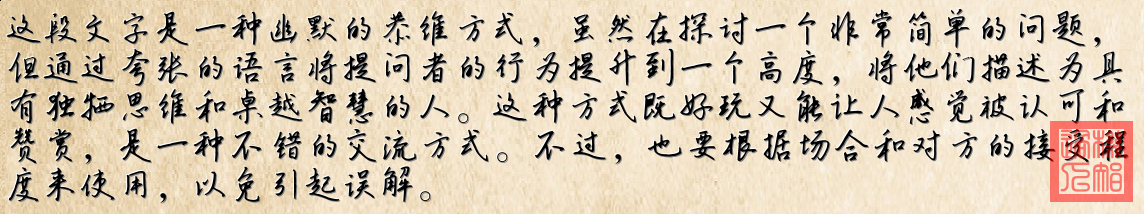 这段文字是一种幽默的恭维方式，虽然在探讨一个非常简单的问题，
但通过夸张的语言将提问者的行为提升到一个高度，将他们描述为具
有独牺思维和桌越智慧的人。这种方式既好玩又能让人感觉被认可和
赞赏，是一种不错的交流方式。不过，也要根据场合和对方的接受程
度来使用，以免引起误解。